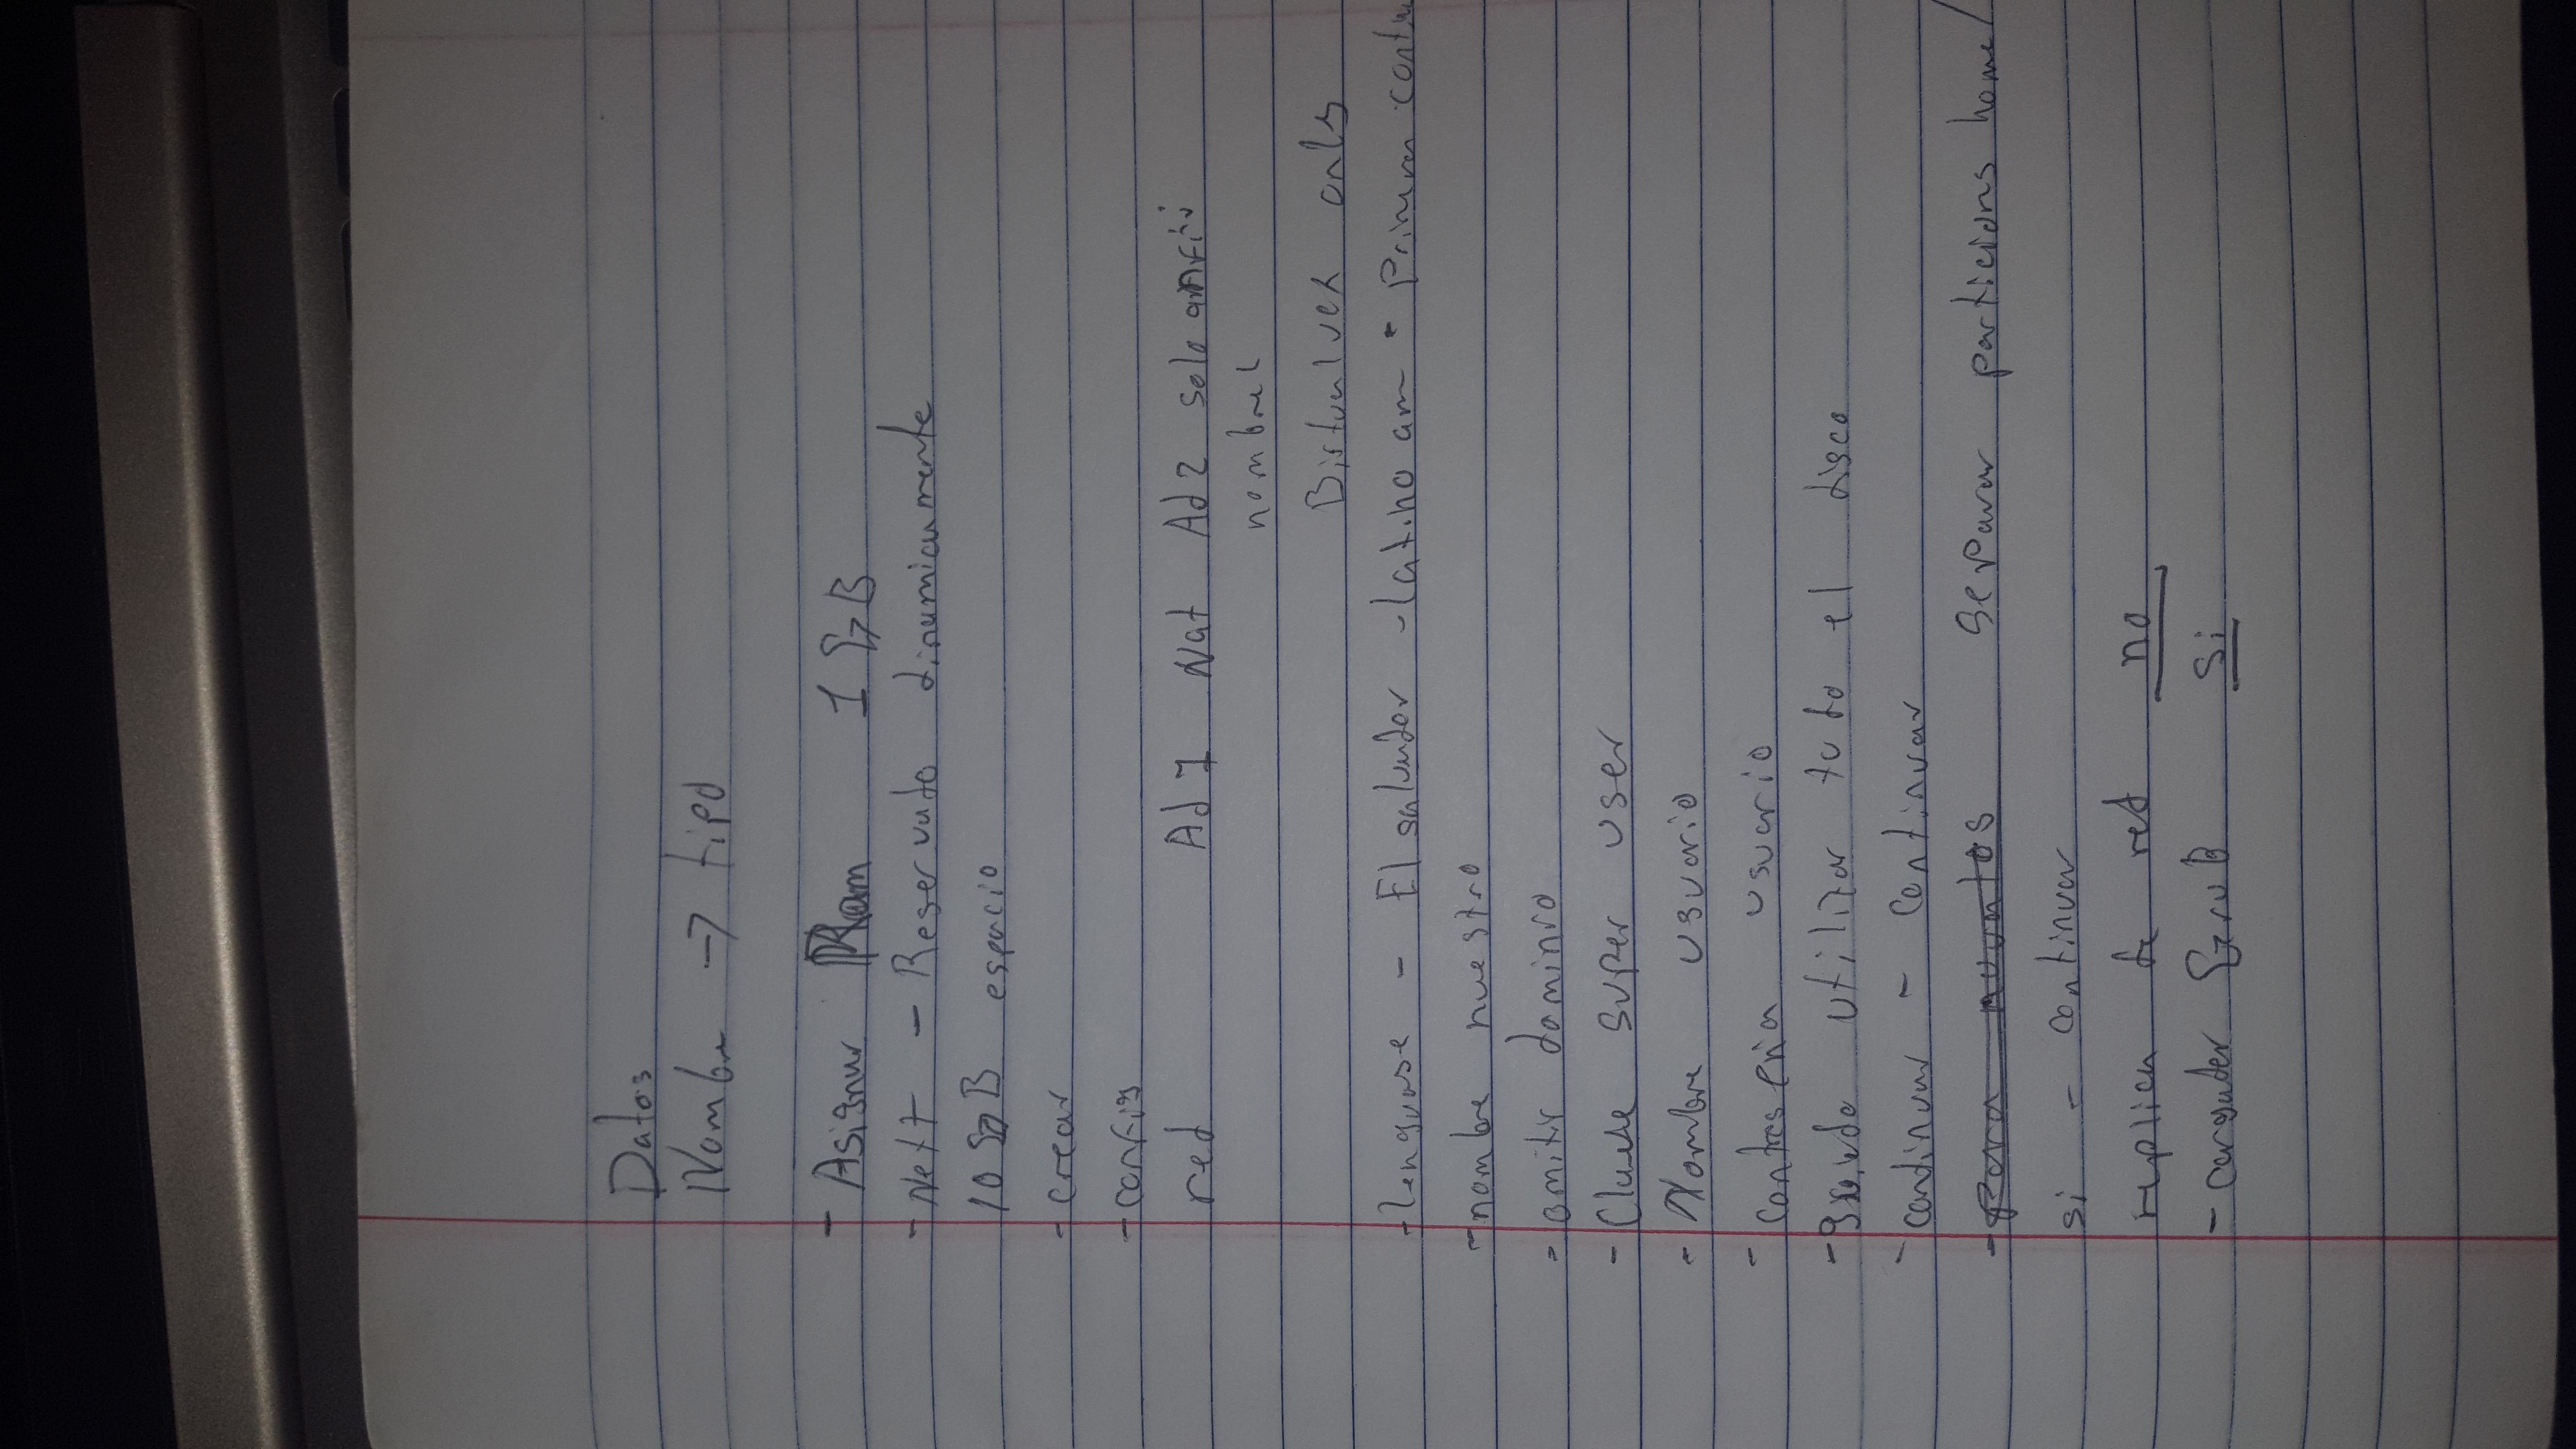 Datos
Nombre → tipo
- Asignar Ram 1 GB
- Next - Reservado dinamicamente
10 GB espacio
- crear
- config
red Ad 1 Nat Ad 2 solo anfi
nombre
Birtualvox only
- lenguase - El salvador - latino am - Primera
- nombre nuestro
- omitir dominio
- Clave super user
- Nombre usuario
- contraseña usuario
- utilizar todo el disco
- continuar - continuar
- para nuvatos separar particions home/
si - continuar
replica de red no
- cargador GruB si